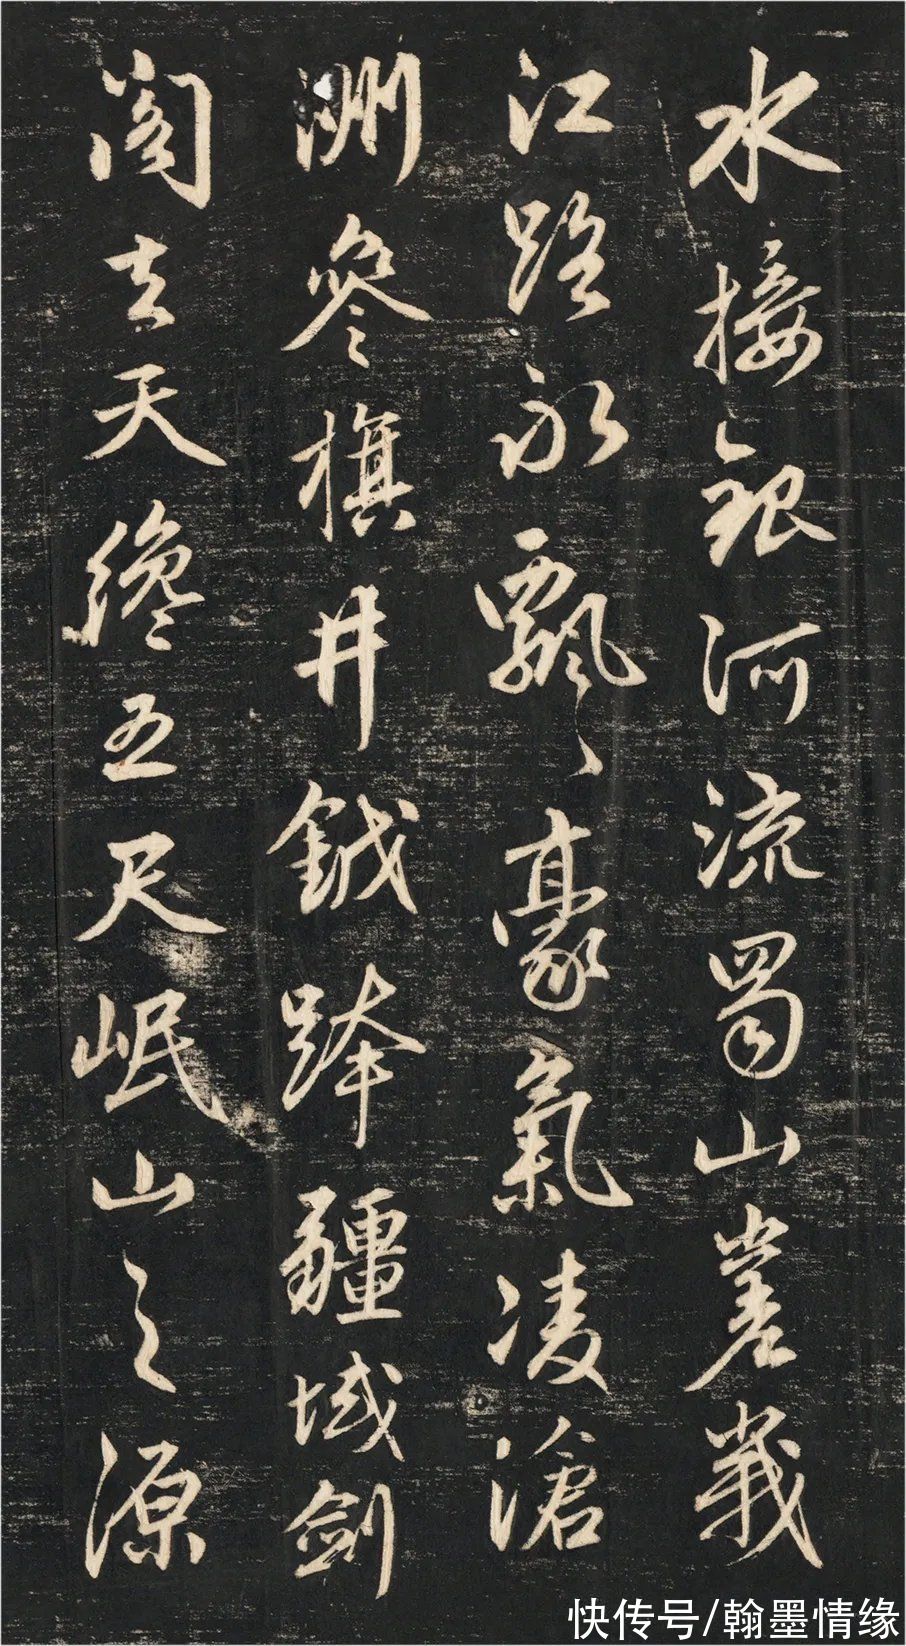 水接銀河流蜀山嵳峩
江路永飄〻豪氣凌滄
洲參旗井鉞跨疆域劍
閣去天纔五尺岷山之源
快传号/翰墨情缘